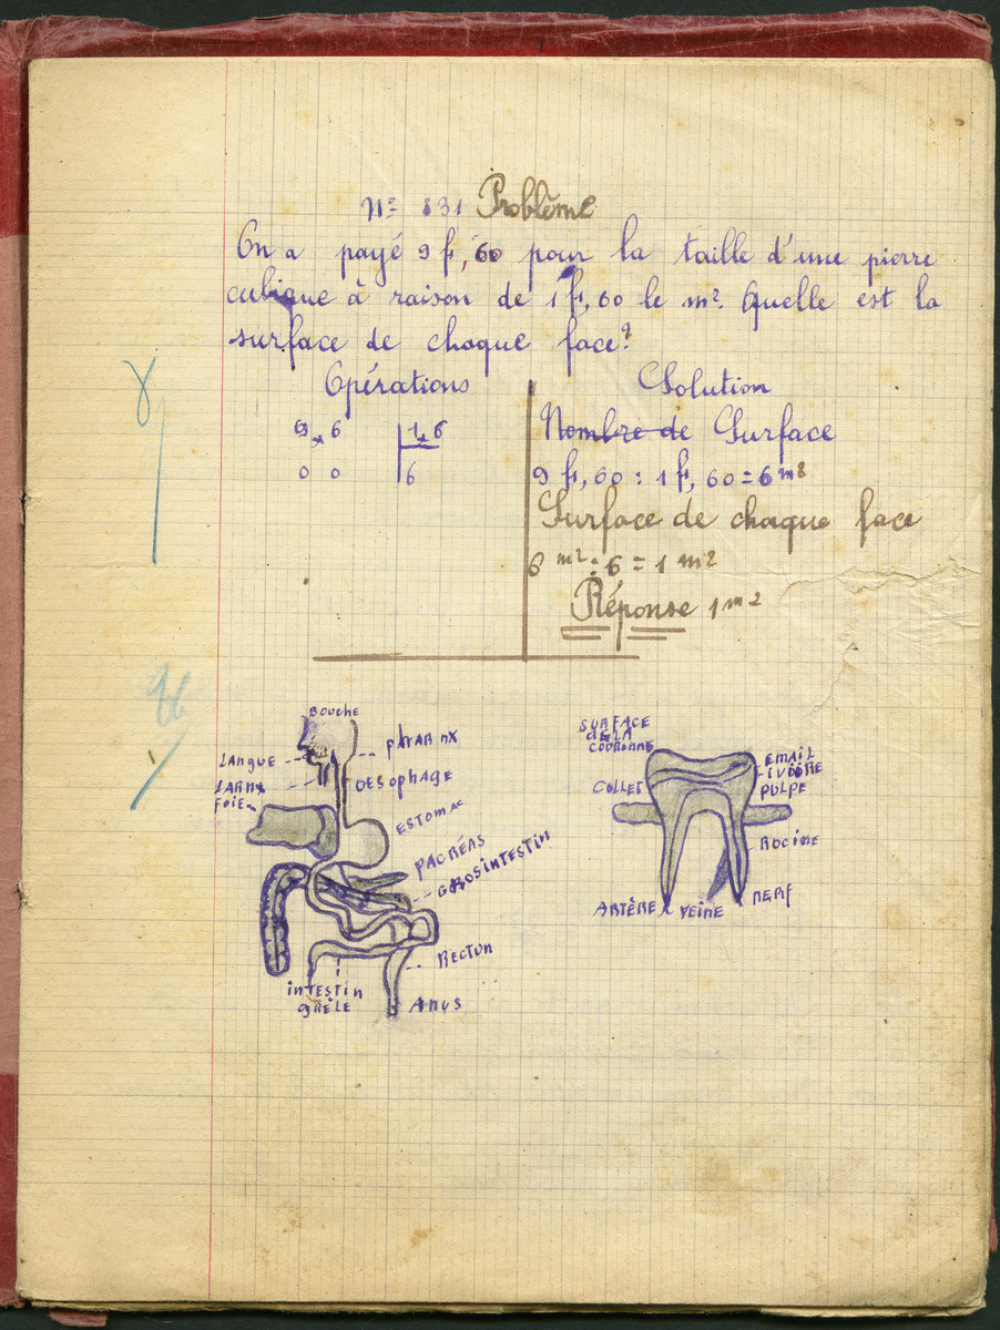 N° 831 Problème
On a payé 9 fr, 60 pour la taille d'une pierre
cubique à raison de 1 fr, 60 le m². Quelle est la
surface de chaque face?
Opérations
9,6 1,6
0 0 6
Solution
Nombre de Surface
9 fr, 60 : 1 fr, 60 = 6 m²
Surface de chaque face
6 m² : 6 = 1 m²
Réponse 1 m²
BOUCHE
PHARNX
LANGUE
LARNX
OESOPHAGE
FOIE
ESTOMAC
PACRÉAS
GROS INTESTIN
RECTUN
INTESTIN
GRÊLE
ANUS
SURFACE
DE LA
COURONNE
EMAIL
IVOIRE
COLLET
PULPE
RACINE
ARTÈRE
VEINE
NERF